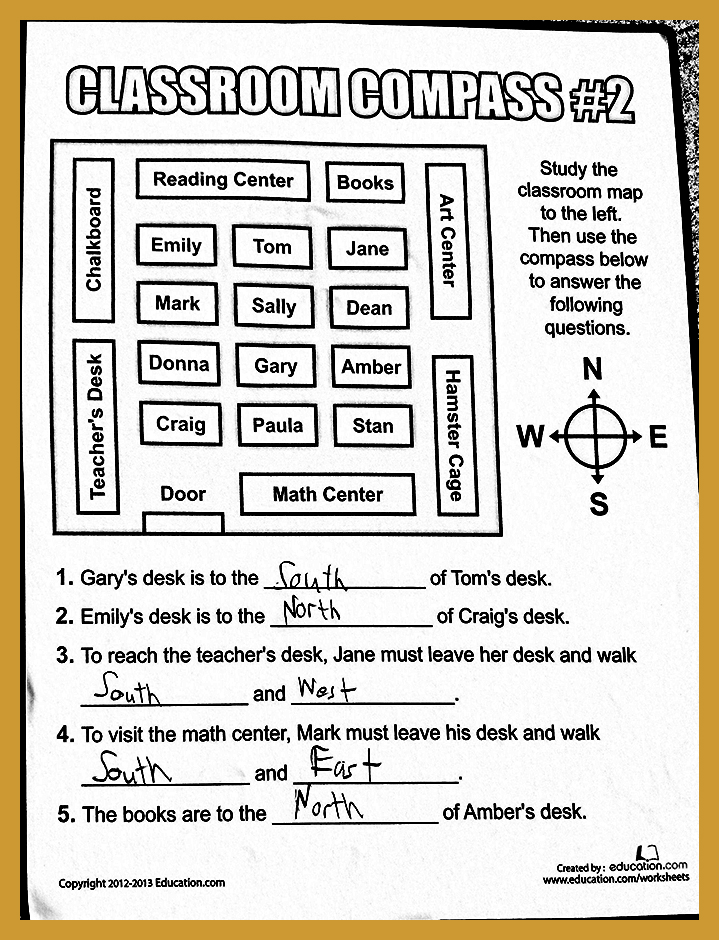 CLASSROOM COMPASS #2
Chalkboard
Reading Center
Books
Art Center
Emily
Tom
Jane
Mark
Sally
Dean
Teacher's Desk
Donna
Gary
Amber
Hamster Cage
Craig
Paula
Stan
Door
Math Center
Study the
classroom map
to the left.
Then use the
compass below
to answer the
following
questions.
N
W
E
S
1. Gary's desk is to the South of Tom's desk.
2. Emily's desk is to the North of Craig's desk.
3. To reach the teacher's desk, Jane must leave her desk and walk
South and West.
4. To visit the math center, Mark must leave his desk and walk
South and East.
5. The books are to the North of Amber's desk.
Copyright 2012-2013 Education.com
Created by: education.com
www.education.com/worksheets